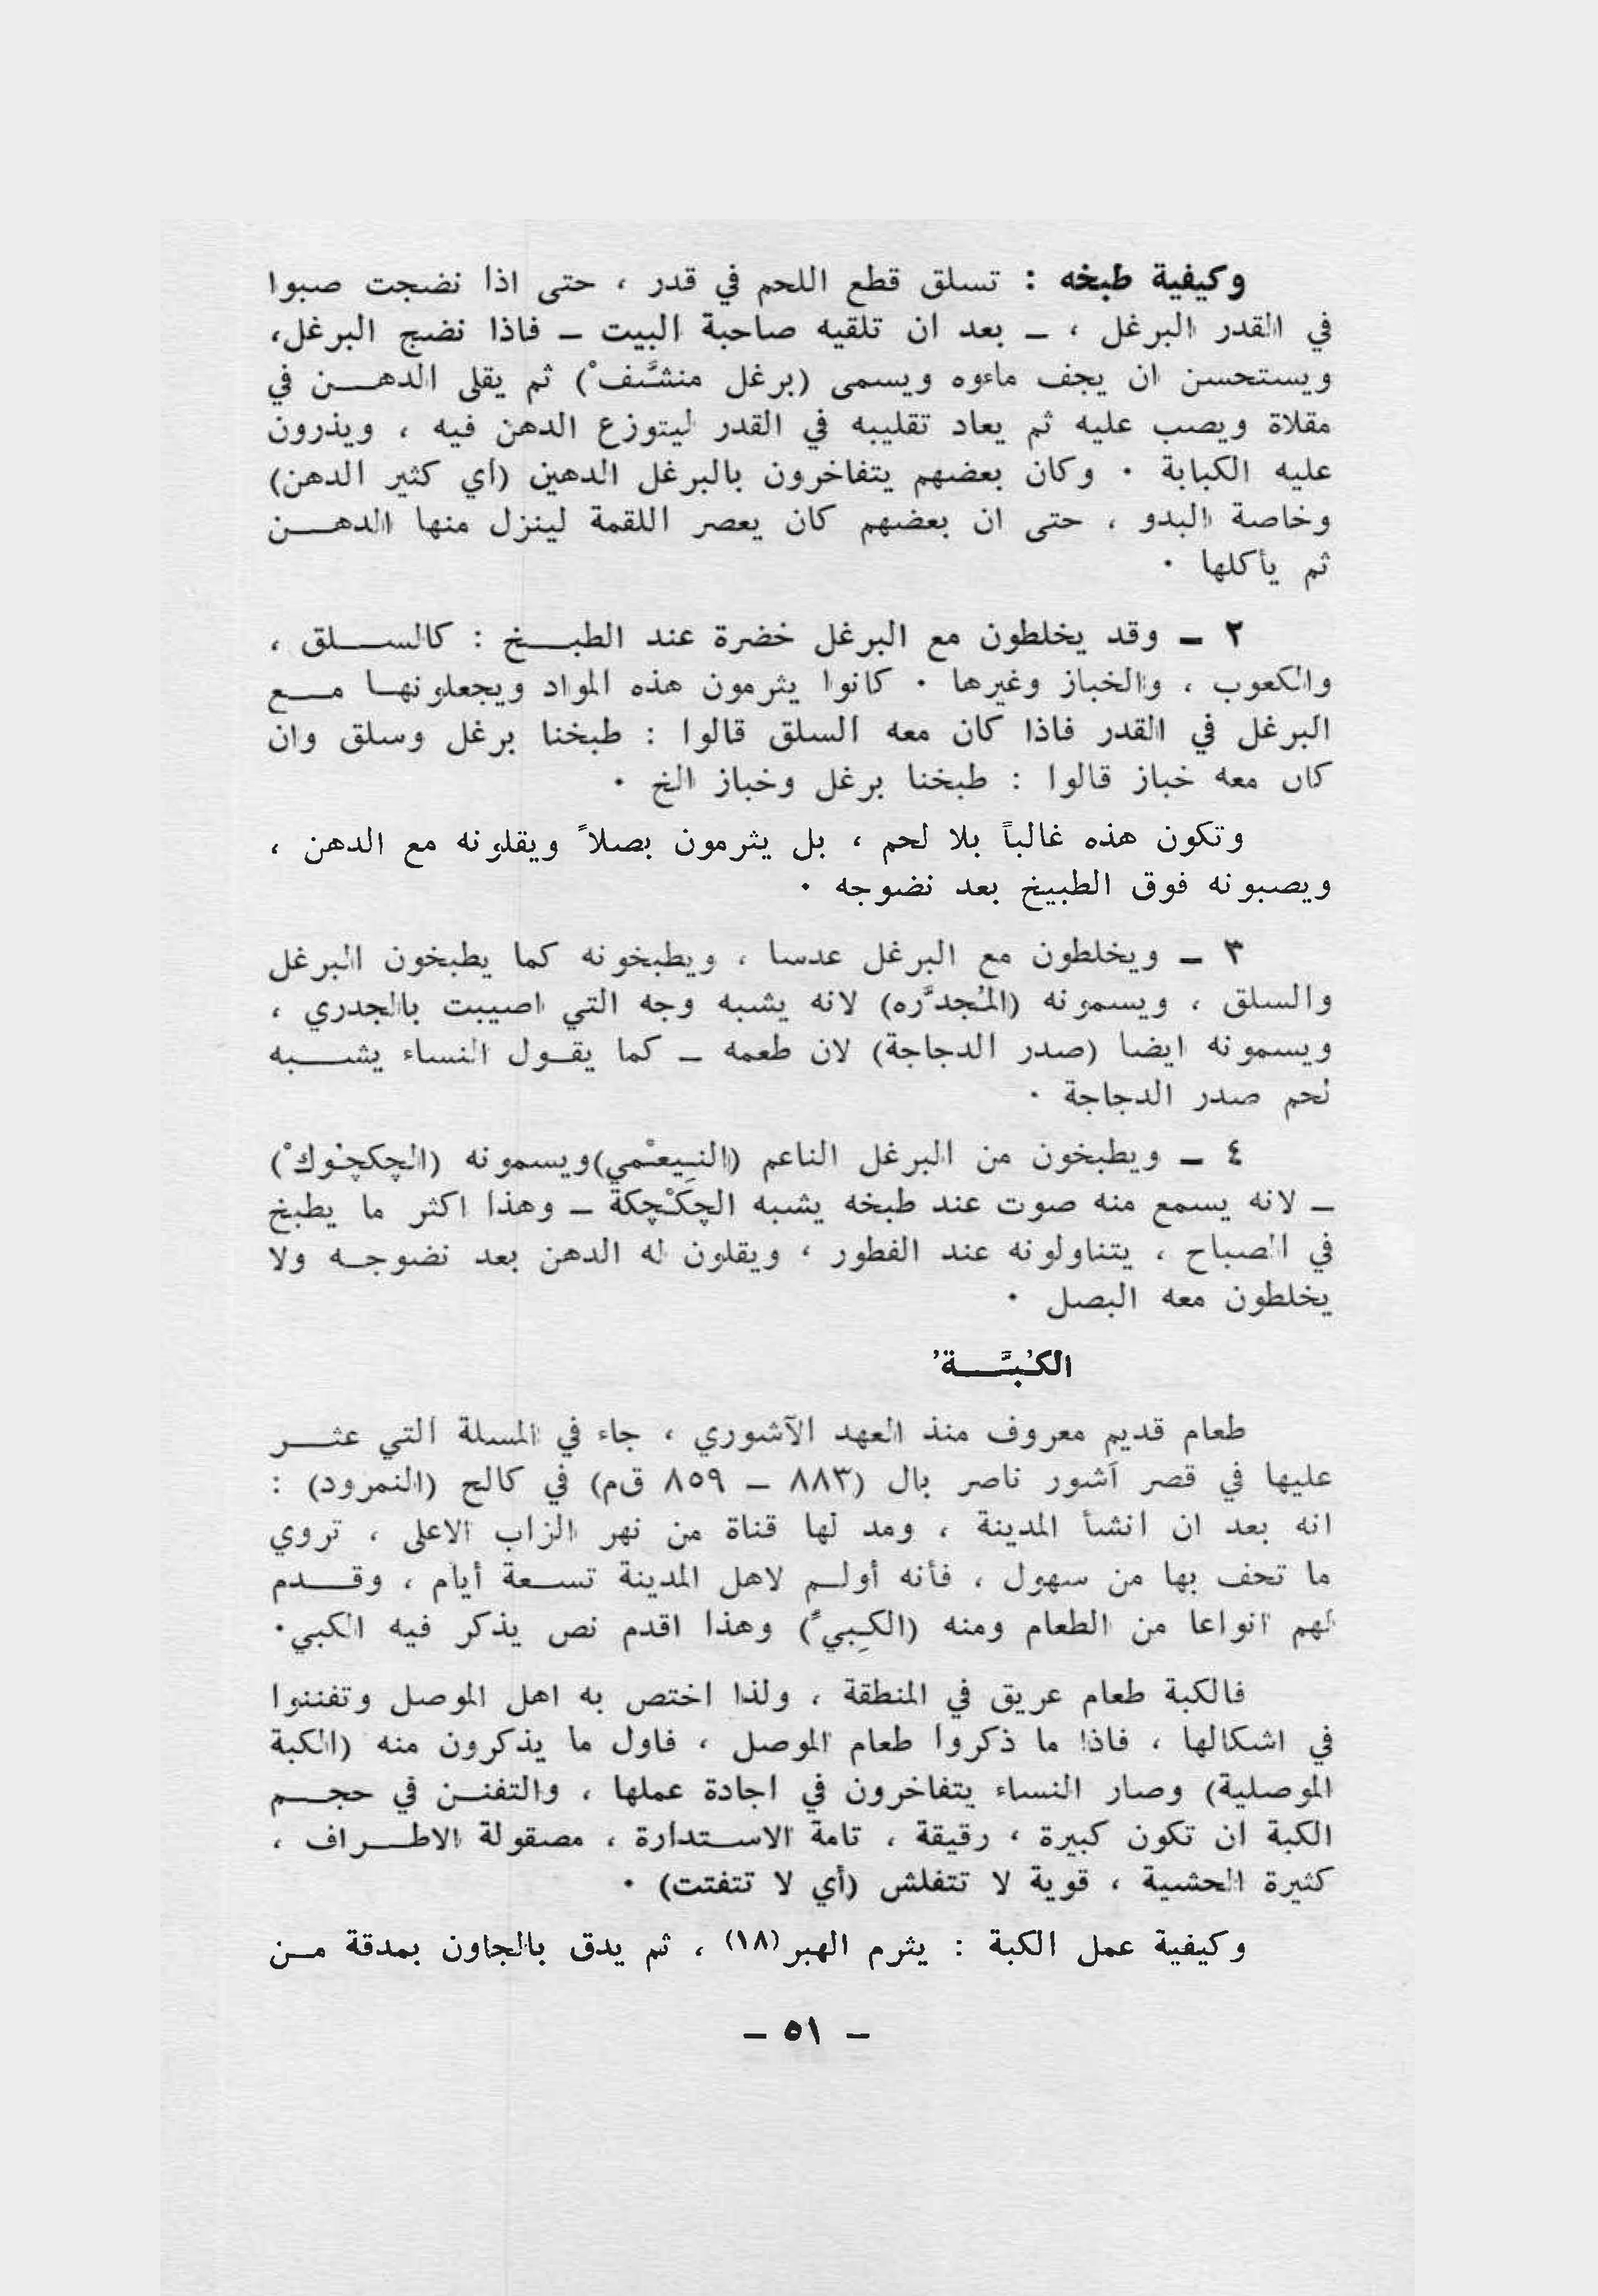 وكيفية طبخه : تسلق قطع اللحم في قدر ، حتى اذا نضجت صبوا
في القدر البرغل ، ــ بعد ان تلقيه صاحبة البيت ــ فاذا نضج البرغل،
ويستحسن ان يجف ماءوه ويسمى (برغل منشَّفْ) ثم يقلى الدهــن في
مقلاة ويصب عليه ثم يعاد تقليبه في القدر ليتوزع الدهن فيه ، ويذرون
عليه الكبابة ٠ وكان بعضهم يتفاخرون بالبرغل الدهين (أي كثير الدهن)
وخاصة البدو ، حتى ان بعضهم كان يعصر اللقمة لينزل منها الدهــن
ثم يأكلها ٠
٢ ــ وقد يخلطون مع البرغل خضرة عند الطبــخ : كالســلق ،
والكعوب ، والخباز وغيرها ٠ كانوا يثرمون هذه المواد ويجعلونهــا مــع
البرغل في القدر فاذا كان معه السلق قالوا : طبخنا برغل وسلق وان
كان معه خباز قالوا : طبخنا برغل وخباز الخ ٠
وتكون هذه غالباً بلا لحم ، بل يثرمون بصلاً ويقلونه مع الدهن ،
ويصبونه فوق الطبيخ بعد نضوجه ٠
٣ ــ ويخلطون مع البرغل عدسا ، ويطبخونه كما يطبخون البرغل
والسلق ، ويسمونه (المُجدَّره) لانه يشبه وجه التي اصيبت بالجدري ،
ويسمونه ايضا (صدر الدجاجة) لان طعمه ــ كما يقــول النساء يشــبه
لحم صدر الدجاجة ٠
٤ ــ ويطبخون من البرغل الناعم (النِيعْمي)ويسمونه (الچكچُوكْ)
ــ لانه يسمع منه صوت عند طبخه يشبه الچكْچكة ــ وهذا اكثر ما يطبخ
في الصباح ، يتناولونه عند الفطور ، ويقلون له الدهن بعد نضوجــه ولا
يخلطون معه البصل ٠
الكُبَّــةُ
طعام قديم معروف منذ العهد الآشوري ، جاء في المسلة التي عثــر
عليها في قصر آشور ناصر بال (٨٨٣ ــ ٨٥٩ ق٠م) في كالح (النمرود) :
انه بعد ان انشأ المدينة ، ومد لها قناة من نهر الزاب الاعلى ، تروي
ما تحف بها من سهول ، فأنه أولــم لاهل المدينة تســعة أيام ، وقــدم
لهم انواعا من الطعام ومنه (الكِبيّ) وهذا اقدم نص يذكر فيه الكبي٠
فالكبة طعام عريق في المنطقة ، ولذا اختص به اهل الموصل وتفننوا
في اشكالها ، فاذا ما ذكروا طعام الموصل ، فاول ما يذكرون منه (الكبة
الموصلية) وصار النساء يتفاخرون في اجادة عملها ، والتفنــن في حجــم
الكبة ان تكون كبيرة ، رقيقة ، تامة الاســتدارة ، مصقولة الاطــراف ،
كثيرة الحشية ، قوية لا تتفلش (أي لا تتفتت) ٠
وكيفية عمل الكبة : يثرم الهبر(١٨) ، ثم يدق بالجاون بمدقة مــن
ــ ٥١ ــ